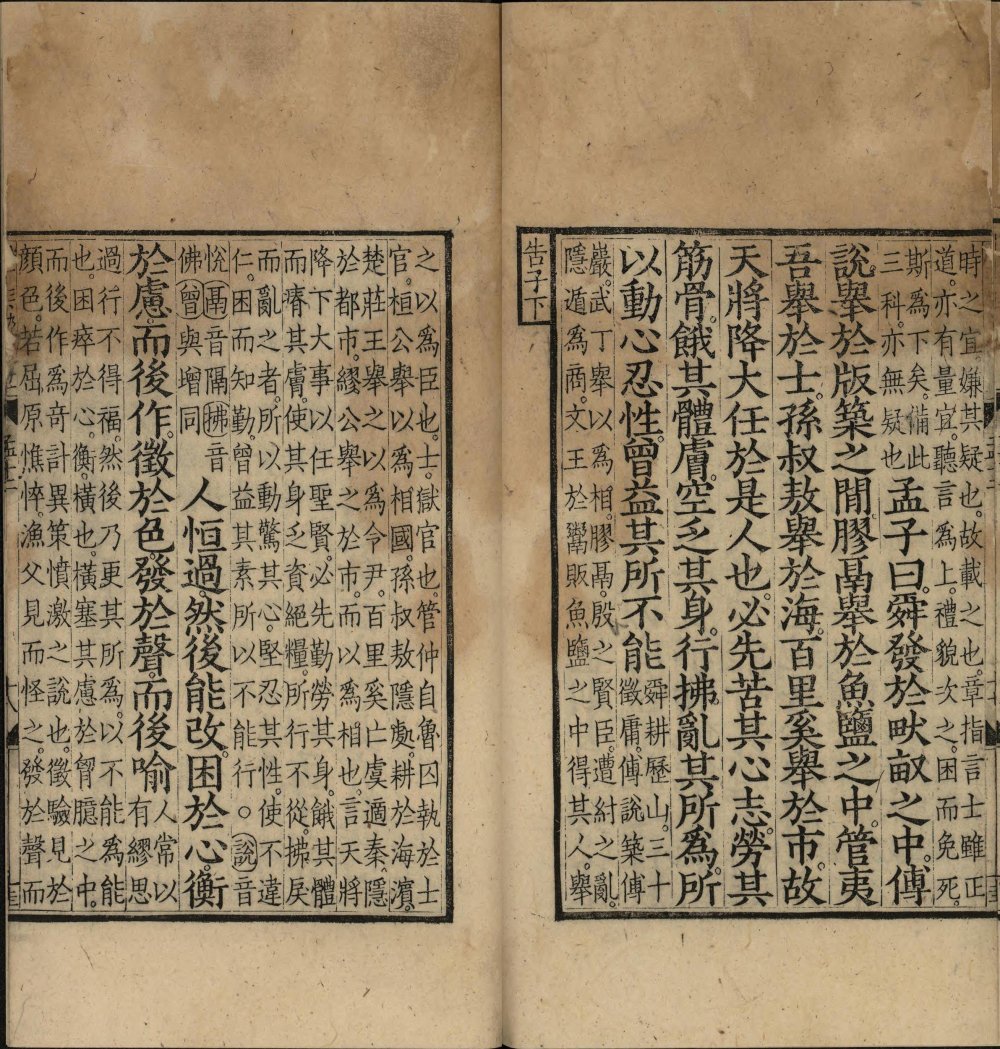 時之宜嫌其疑也。故載之也。章指言士雖正
道。亦有量宜。聽言為上。禮貌次之。困而免死。
斯為下矣。備此
三科。亦無疑也
孟子曰。舜發於畎畝之中。傅
說舉於版築之閒。膠鬲舉於魚鹽之中。管夷
吾舉於士。孫叔敖舉於海。百里奚舉於市。故
天將降大任於是人也。必先苦其心志。勞其
筋骨。餓其體膚。空乏其身。行拂亂其所爲。所
以動心忍性。曾益其所不能
舜耕歷山。三十
徵庸。傅說築傅
巖。武丁舉以爲相。膠鬲。殷之賢臣。遭紂之亂。
隱遁爲商。文王於鬻販魚鹽之中得其人。舉
告子下
之以爲臣也。士。獄官也。管仲自魯囚執於士
官。桓公舉以爲相國。孫叔敖隱處。耕於海濱。
楚莊王舉之以爲令尹。百里奚亡虞適秦。隱
於都市。繆公舉之於市。而以爲相也。言天將
降下大事以任聖賢。必先勤勞其身。餓其體
而瘠其膚。使其身乏資絕糧。所行不從。拂戾
而亂之者。所以動驚其心。堅忍其性。使不違
仁。困而知勤。曾益其素所以不能行。○說音
悅鬲音隔拂音
佛曾與增同
人恒過。然後能改。困於心衡
於慮。而後作。徵於色。發於聲。而後喻
人常以
有繆思
過行不得福。然後乃更其所爲。以不能爲能
也。困瘁於心。衡。橫也。橫塞其慮於胷臆之中。
而後作爲奇計異策。憤激之說也。徵驗見於
顏色。若屈原憔悴。漁父見而怪之。發於聲而